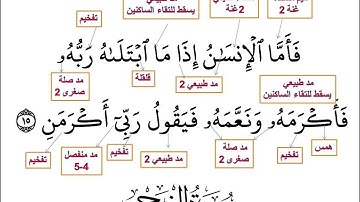 غنة 2
2 غنة
يسقط للتقاء الساكنين
تفخيم
فَأَمَّا ٱلْإِنسَـٰنُ إِذَا مَا ٱبْتَلَىٰهُ رَبُّهُۥ
مد صلة صغرى 2
قلقلة
مد طبيعي 2
تفخيم
مد طبيعي يسقط للتقاء الساكنين
فَأَكْرَمَهُۥ وَنَعَّمَهُۥ فَيَقُولُ رَبِّىٓ أَكْرَمَنِ ١٥
همس
تفخيم
مد صلة صغرى 2
مد طبيعي 2
تفخيم
مد منفصل 4-5
تفخيم